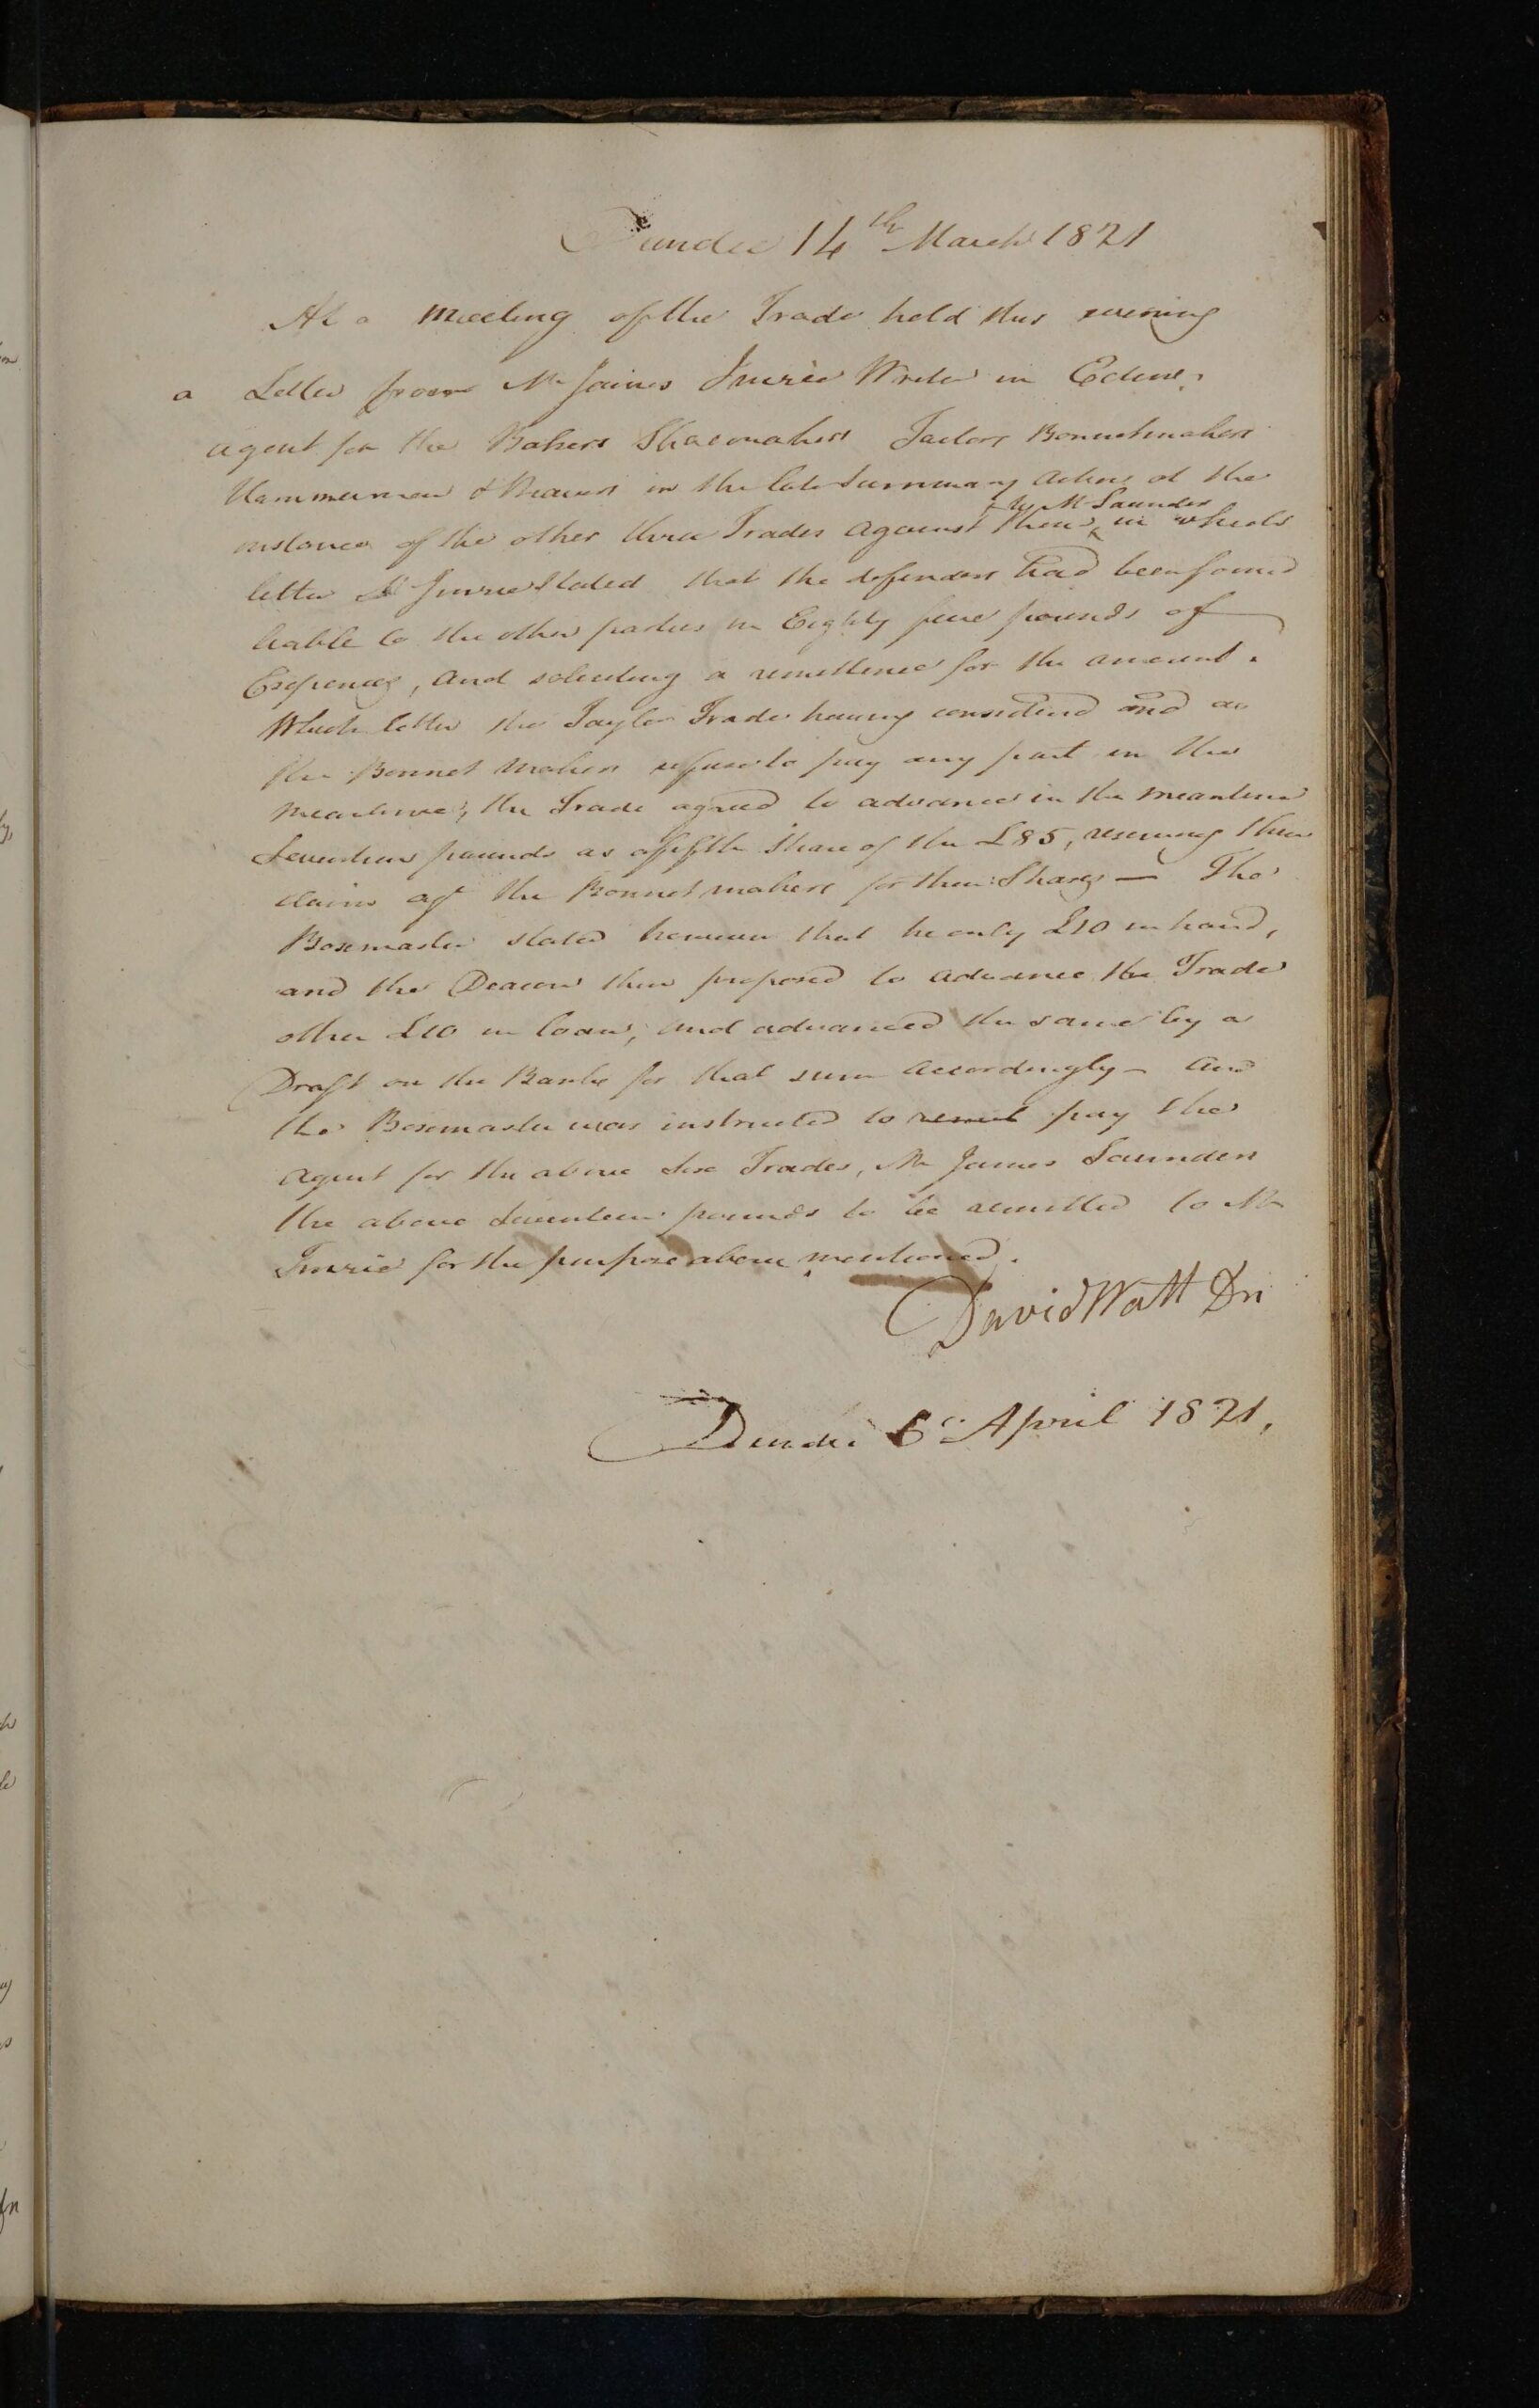 Dundee 14th March 1821
At a meeting of the Trade held this evening
a Letter from Mr James Imrie Writer in Edinr.
agent for the Bakers Shoemakers Tailors Bonnetmakers
Hammermen & Weavers in the late Summary action at the
to Mr Saunders
instance of the other three Trades against them in which
letter Mr Imrie stated that the defenders had been found
liable to the other parties in Eighty five pounds of
Expences, and soliciting a remittence for the amount.
Which letter the Taylor Trade having considered and as
the Bonnet makers refuse to pay any part in the
meantime, the Trade agreed to advance in the meantime
Seventeen pounds as a fifth Share of the £85, reserving their
claim agt the Bonnetmakers for their Share — The
Boxmaster stated however that he only £10 in hand,
and the Deacon then proposed to advance the Trade
other £10 in loan, and advanced the same by a
Draft on the Bank for that sum accordingly — and
the Boxmaster was instructed to remit pay the
agent for the above Six Trades, Mr James Saunders
the above Seventeen pounds to be remitted to Mr
Imrie for the purpose above mentioned.
David Watt Dn
Dundee 6 April 1821.